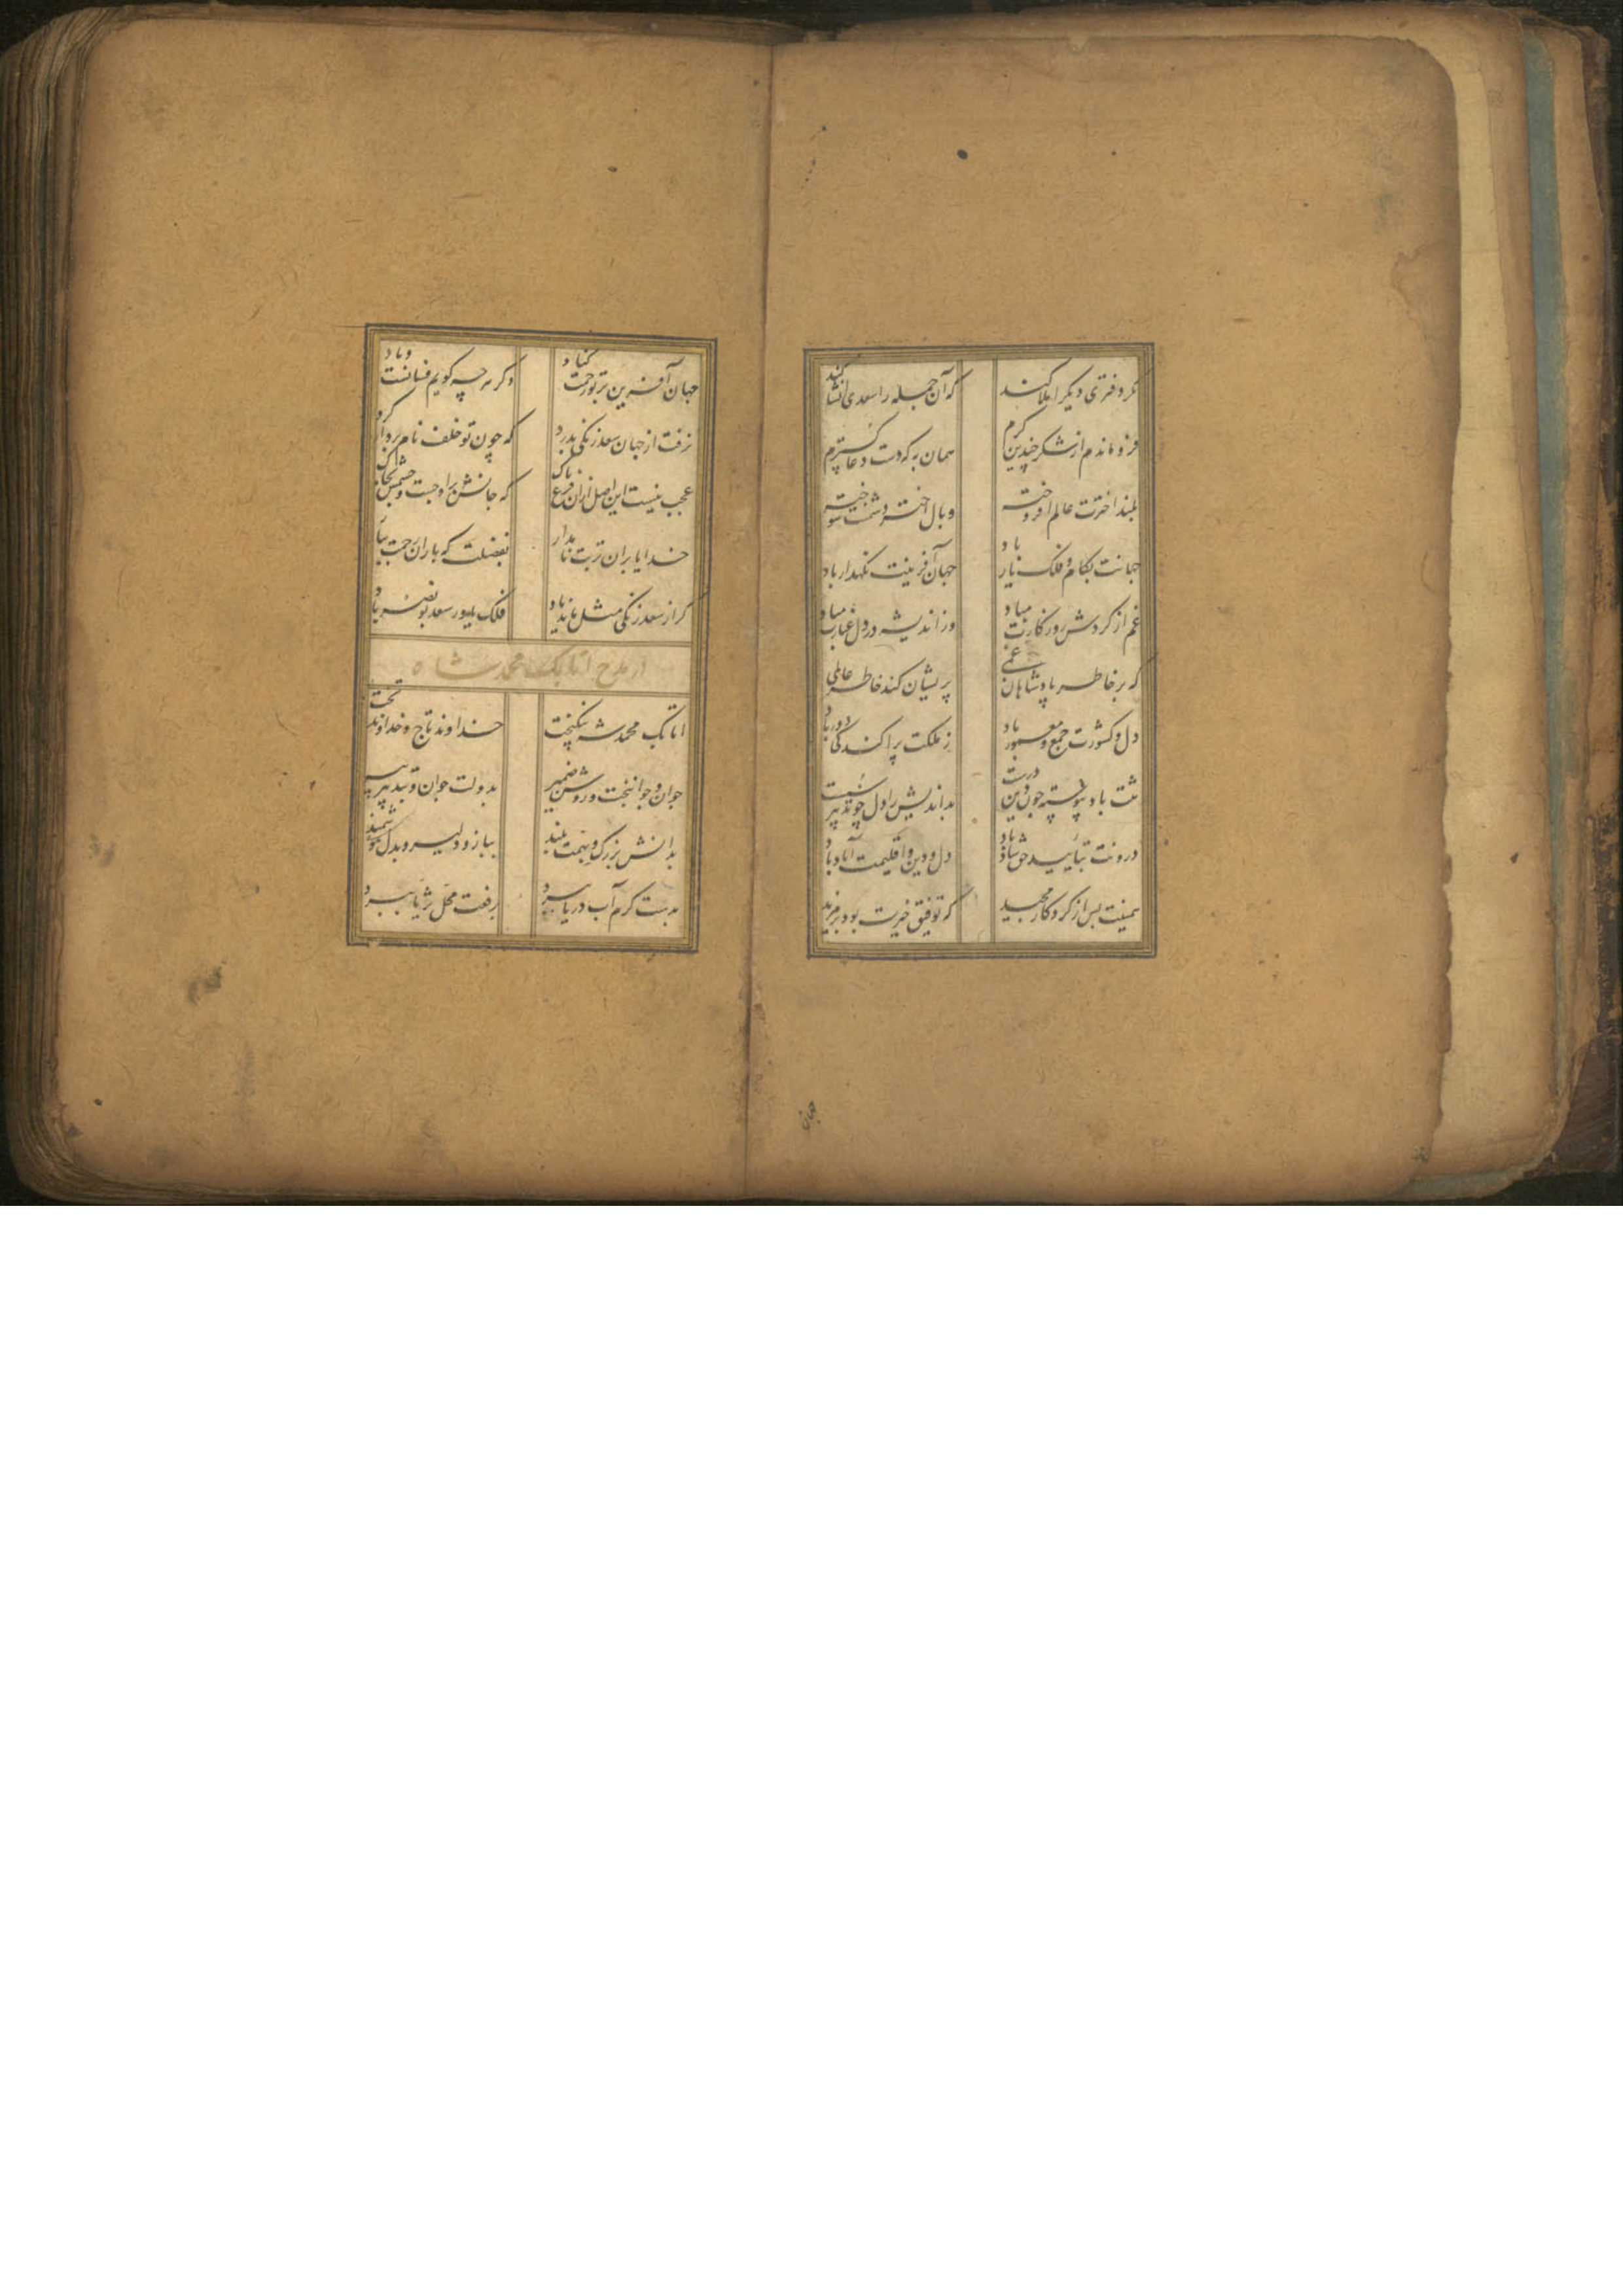 مگر دفتری دیگر املا کنند که آن جمله را سعدی انشا کند
فرو ماندم از شکر چندین کرم همان به که دست دعا گسترم
بلند اخترت عالم افروخته وبال اختر دشمنت سوخته
جهانت بکام و فلک یار باد جهان آفرینت نگهدار باد
غم از گردش روزگارت مباد وز اندیشه در دل غبارت مباد
که بر خاطر پادشاهان غمی پریشان کند خاطر عالمی
دل و کشورت جمع و معمور باد ز ملکت پراکندگی دور باد
تنت باد پیوسته چون دین درست بداندیش را دل چو تدبیر سست
درونت بتأیید حق شاد باد دل و دین و اقلیمت آباد باد
همینت بس از کردگار مجید که توفیق خیرت بود بر مزید
جهان
جهان آفرین بر تو رحمت کناد دگر هر چه گویم فسانست و باد
نرفت از جهان سعد زنگی بدرد که چون تو خلف نام بردار کرد
عجب نیست این اصل ازان فرع پاک که جانش بر اوجست و جسمش بخاک
خدایا بران تربت نامدار بفضلت که باران رحمت ببار
گر از سعد زنگی مثل ماند یاد فلک یاور سعد بو نصر باد
در مدح اتابک محمد شاه
اتابک محمد شه نیکبخت خداوند تاج و خداوند تخت
جوان و جوانبخت و روشن ضمیر بدولت جوان و بتدبیر پیر
بدانش بزرگ و بهمت بلند ببازو دلیر و بدل هوشمند
بدست کرم آب دریا ببرد برفعت محل ثریا ببرد